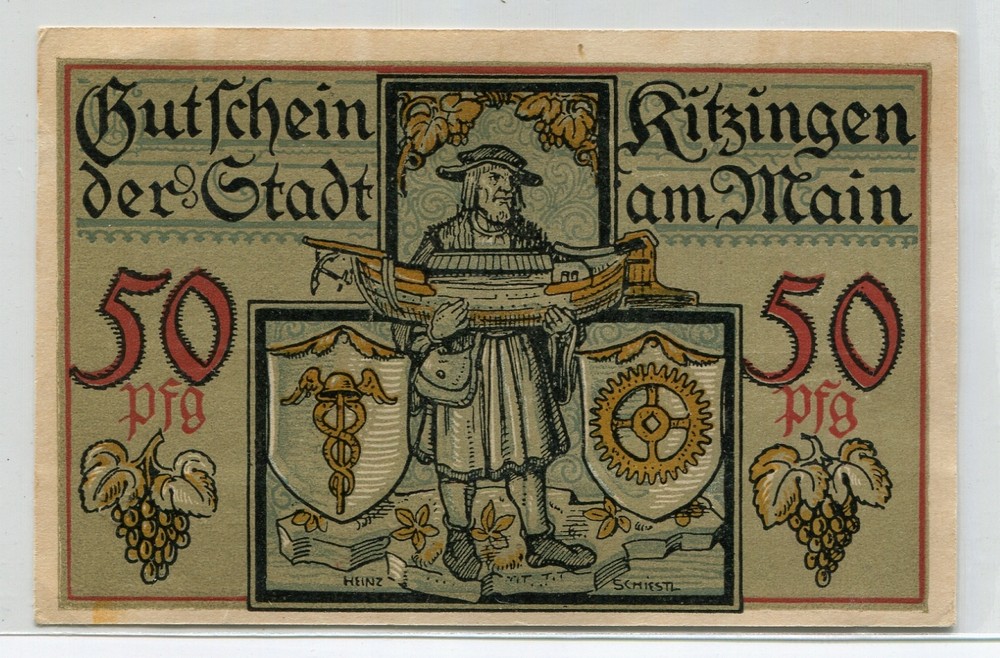 Gutschein
der Stadt
Kitzingen
am Main
50
pfg
50
pfg
HEINZ
SCHIESTL